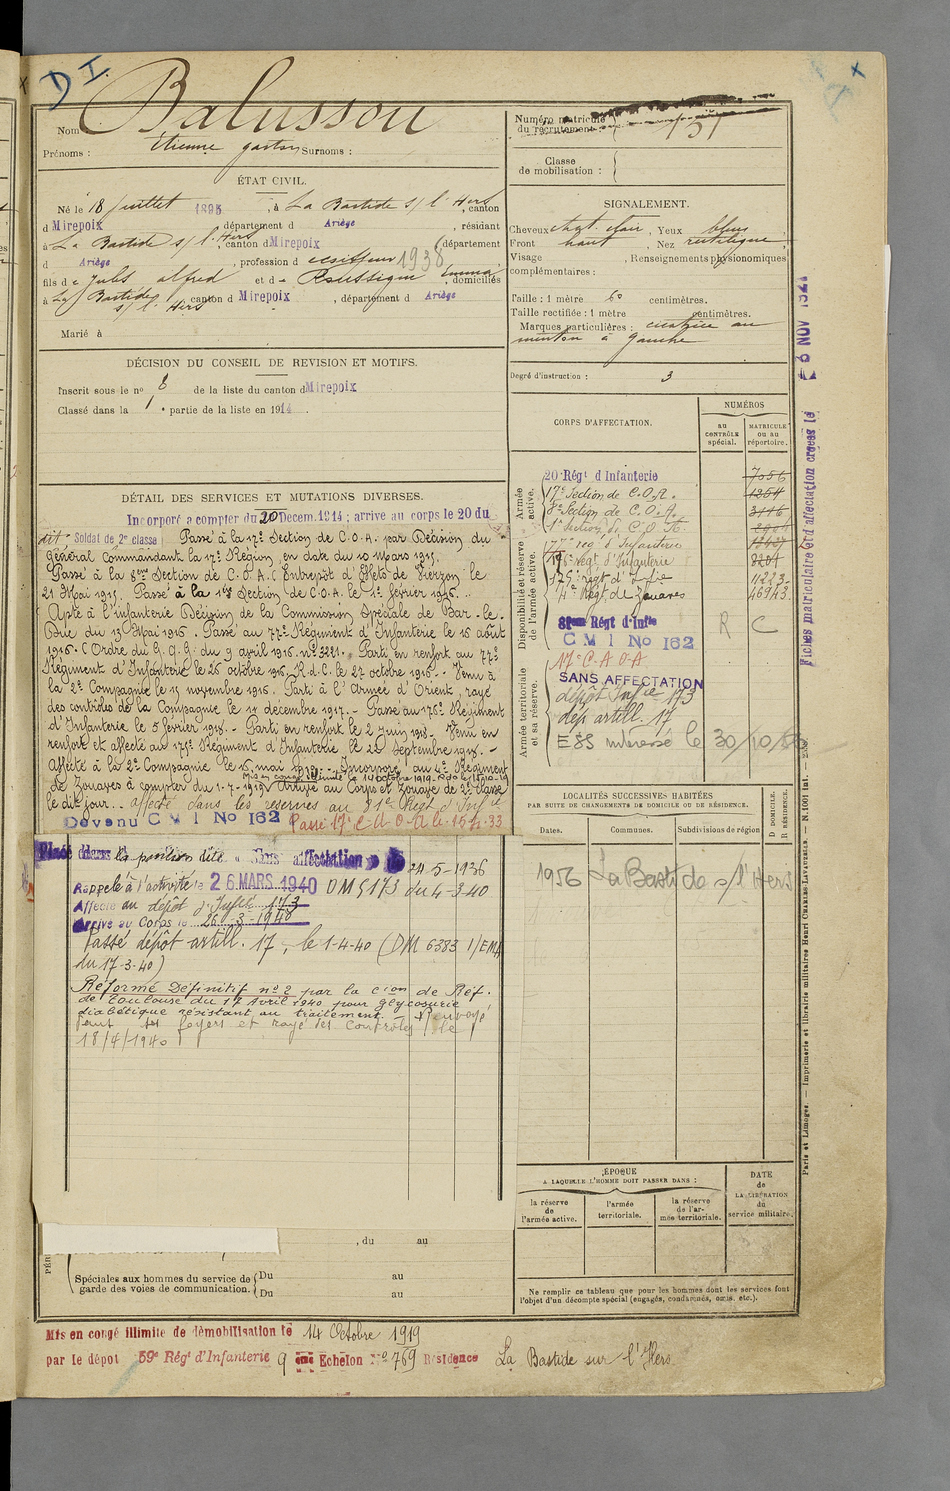 D I.
Nom Balussou
Prénoms : Etienne gaston Surnoms :
ÉTAT CIVIL.
Né le 18 juillet 1895, à La Bastide s/ l'Hers, canton
d Mirepoix, département d Ariège, résidant
à La Bastide s/ l'Hers, canton d Mirepoix, département
d Ariège, profession d 1938
fils de Jules alfred et de Roussique Emma, domiciliés
à La Bastide s/ l'Hers, canton d Mirepoix, département d Ariège
Marié à
DÉCISION DU CONSEIL DE REVISION ET MOTIFS.
Inscrit sous le no 8 de la liste du canton d Mirepoix
Classé dans la 1e partie de la liste en 1914.
DÉTAIL DES SERVICES ET MUTATIONS DIVERSES.
Incorporé a compter du 20 Decem. 1914 ; arrive au corps le 20 du
dit Soldat de 2e classe Passé à la 17e Section de C.O.A. par Décision du
Général Commandant la 17e Région, en date du 10 mars 1915.
Passé à la 8eme Section de C.O.A. (Entrepôt d'Effets de Vierzon) le
21 Mai 1915. Passé à la 1ere Section de C.O.A. le 1er février 1916.
Apte à l'infanterie Décision de la Commission Spéciale de Bar-le-
Duc du 13 Mai 1916. Passé au 77e Régiment d'Infanterie le 16 août
1916. (Ordre du G.Q.G. du 9 avril 1916. no 3221. Parti en renfort au 77e
Régiment d'Infanterie le 26 octobre 1916. R.d.C. le 27 octobre 1916. - Venu à
la 2e Compagnie le 15 novembre 1916. Parti à l'Armée d'Orient, rayé
des contrôles de la Compagnie le 14 décembre 1917. - Passé au 176e Régiment
d'Infanterie le 5 février 1918. - Parti en renfort le 2 Juin 1918. Venu en
renfort et affecté au 175e Régiment d'Infanterie le 22 Septembre 1918. -
Affecté à la 2e Compagnie le 16 mai 1919. - Incorporé au 4e Régiment
Mis en congé illimité le 14 octobre 1919.
de Zouaves à compter du 1-7-1919. Arrivé au Corps et Zouave de 2e classe
le dit jour. affecté dans les réserves au 81e Régt d'Infie
Devenu C M I No 162 Passé 17e C.O.A. le 15.4.33
Placé dans la position dite Sans affectation 24-5-1936
Rappelé à l'activité le 26 MARS 1940 DM 5173 du 4-3-40
Affecté au dépôt d'Infie 173
Arrivé au Corps le 26-3-1940
Passé dépôt artill. 17, le 1-4-40 (DM 6383 1/EMA
du 17-3-40)
Réformé Définitif no 2 par la Cion de Réf.
de Toulouse du 17 Avril 1940 pour glycosurie
diabétique résistant au traitement. - Renvoyé
dans ses foyers et rayé des Contrôles le
18/4/1940
, du au
Spéciales aux hommes du service de garde des voies de communication. { Du au
Du au
Numéro matricule du recrutement :
Classe de mobilisation :
SIGNALEMENT.
Cheveux chat. clair, Yeux bleus
Front haut, Nez rectiligne
Visage , Renseignements physionomiques
complémentaires :
Taille : 1 mètre 60 centimètres.
Taille rectifiée : 1 mètre centimètres.
Marques particulières : cicatrice au
menton à gauche
Degré d'instruction : 3
CORPS D'AFFECTATION.
NUMÉROS
au CONTRÔLE spécial.
MATRICULE ou au répertoire.
Armée active.
20 Régt d'Infanterie 7056
17e Section de C.O.A. 1254
8e Section de C.O.A. 3116
1e Section de C.O.A.
Disponibilité et réserve de l'armée active.
77e reg' d'Infanterie
176e regt. d'Infanterie 9201
175e regt d'Infie 11223
4e Régt de Zouaves 46943
81eme Régt d'Infie R C
C M I No 162
Armée territoriale et sa réserve.
17e C.A O.A
SANS AFFECTATION
dépôt Infie 173
dép artill. 17
le 30/10/56
LOCALITÉS SUCCESSIVES HABITÉES
PAR SUITE DE CHANGEMENTS DE DOMICILE OU DE RÉSIDENCE.
D DOMICILE.
R RÉSIDENCE.
Dates. Communes. Subdivisions de région
1956 La Bastide s/ l'Hers
ÉPOQUE
A LAQUELLE L'HOMME DOIT PASSER DANS :
la réserve de l'armée active.
l'armée territoriale.
la réserve de l'armée territoriale.
DATE de LA LIBÉRATION du service militaire.
Ne remplir ce tableau que pour les hommes dont les services font
l'objet d'un décompte spécial (engagés, condamnés, omis, etc.).
Fiches matriculaire et d'affectation créées le 8 NOV 192
Paris et Limoges. — Imprimerie et librairie militaires Henri CHARLES-LAVAUZELLE. — N. 1001 int.
Mis en congé illimité de démobilisation le 14 Octobre 1919
par le dépot 59e Régt d'Infanterie 9 ème Echelon No 769 Résidence La Bastide sur l'Hers